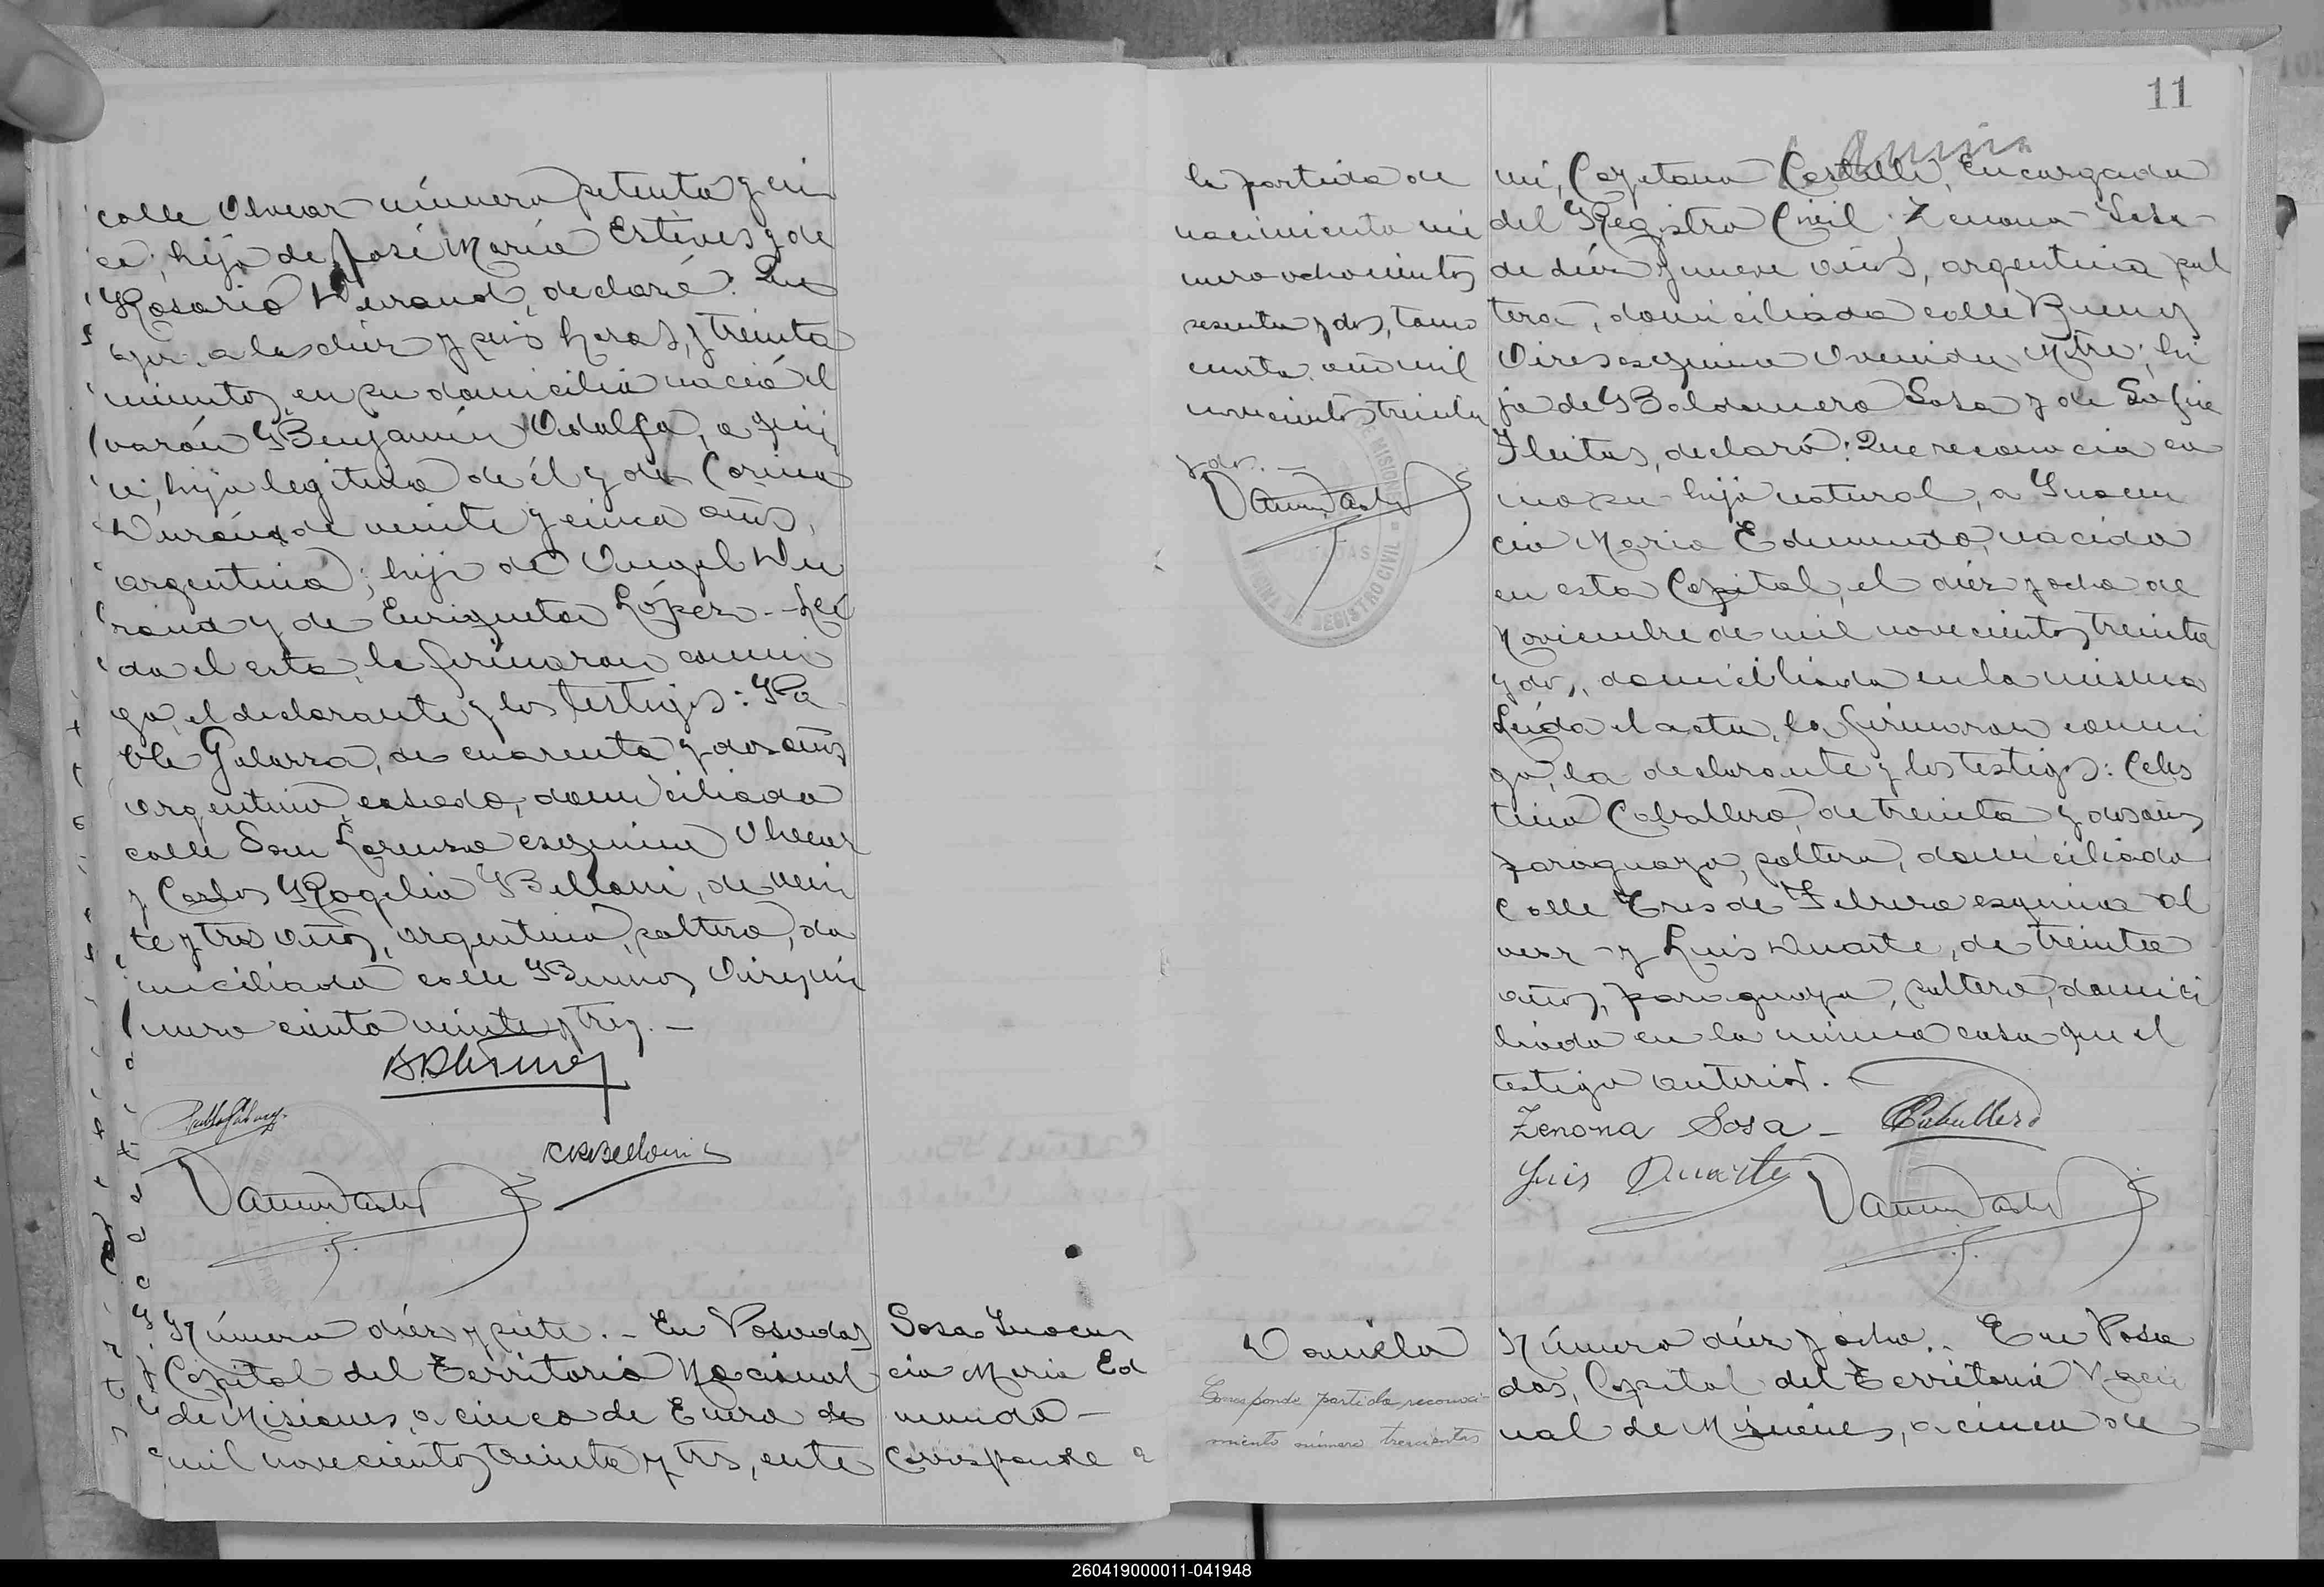 calle Alvear número setenta y cin
co, hijo de José María Esteves y de
Rosario Durand, declaró: Que
ayer a las diez y seis horas y treinta
minutos, en su domicilio nació el
varón Benjamín Adolfo, a quien
hijo legítimo de él y de Corina
Durand de veinte y cinco años,
argentina; hija de Angel Du
rand y de Enriqueta López. - Leí
da el acta, la firmaron conmi
go, el declarante y los testigos: Pa
blo Galarza, de cuarenta y dos años
argentino, casado, domiciliado
calle San Lorenzo esquina Alvear
y Carlos Rogelio Belloni, de vein
te y tres años, argentino, soltero, do
miciliado calle Buenos Aires nú
mero ciento veinte y tres. -
CRBelloni
Número diez y siete. - En Posadas
Capital del Territorio Nacional
de Misiones, a cinco de Enero de
mil novecientos treinta y tres, ante
Sosa Inocen
cia Maria Ed
munda -
Corresponde a
11
la partida de
nacimiento nú
mero ochocientos
sesenta y dos, tomo
cuarto, año mil
novecientos treinta
y dos. -
OFICINA DE REGISTRO CIVIL
POSADAS
mí, Cayetano Castelli, Encargado
del Registro Civil, Zenona Sosa
de diez y nueve años, argentina, sol
tera, domiciliada calle Buenos
Aires esquina Avenida Mitre; hi
ja de Baldomero Sosa y de
Fleitas, declaró: Que reconocía co
mo su hija natural, a Inocen
cia Maria Edmunda, nacida
en esta Capital, el diez y ocho de
Noviembre de mil novecientos treinta
y dos, domiciliada en la misma
Leída el acta, la firmaron conmi
go, la declarante y los testigos: Celes
tino Caballero, de treinta y dos años
paraguayo, soltero, domiciliado
calle Tres de Febrero esquina Al
vear - y Luis Duarte, de treinta
años, paraguayo, soltero, domici
liado en la misma casa que el
testigo anterior. -
Zenona Sosa - CCaballero
Luis Duarte
Daniela
Corresponde partida reconoci-
miento número trescientos
Número diez y ocho. - En Posa
das, Capital del Territorio Nacio
nal de Misiones, a cinco de
260419000011-041948